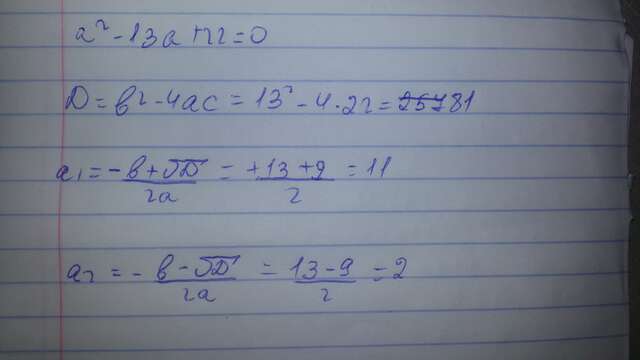 a² - 13a + 22 = 0
D = b² - 4ac = 13² - 4·22 = 81
a₁ = (-b + √D) / 2a = (+13 + 9) / 2 = 11
a₂ = (-b - √D) / 2a = (13 - 9) / 2 = 2